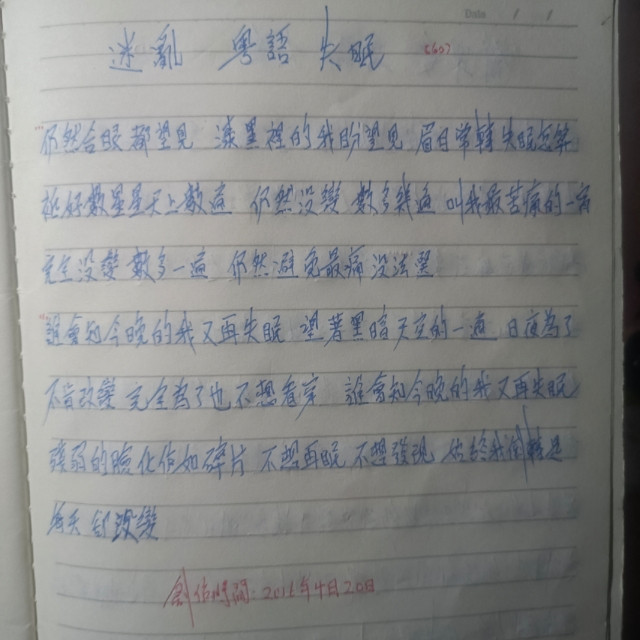 Date / /
迷亂 粵語 失眠
仍然合眼都望見 漆黑裡的我盼望見 眉目常轉失眠怎算
數星星天上數遍 仍然沒變 數多幾遍 叫我最苦痛的一
完全沒變數多一遍 仍然避免最痛沒法望
誰會知今晚的我又再失眠 望著黑暗天空的一邊 日夜為了
不能改變 完全為了也不想看穿 誰會知今晚的我又再失眠
的臉化作如碎片 不想再眠 不想發現 始終我們
沒變
創作時間: 年4月20日